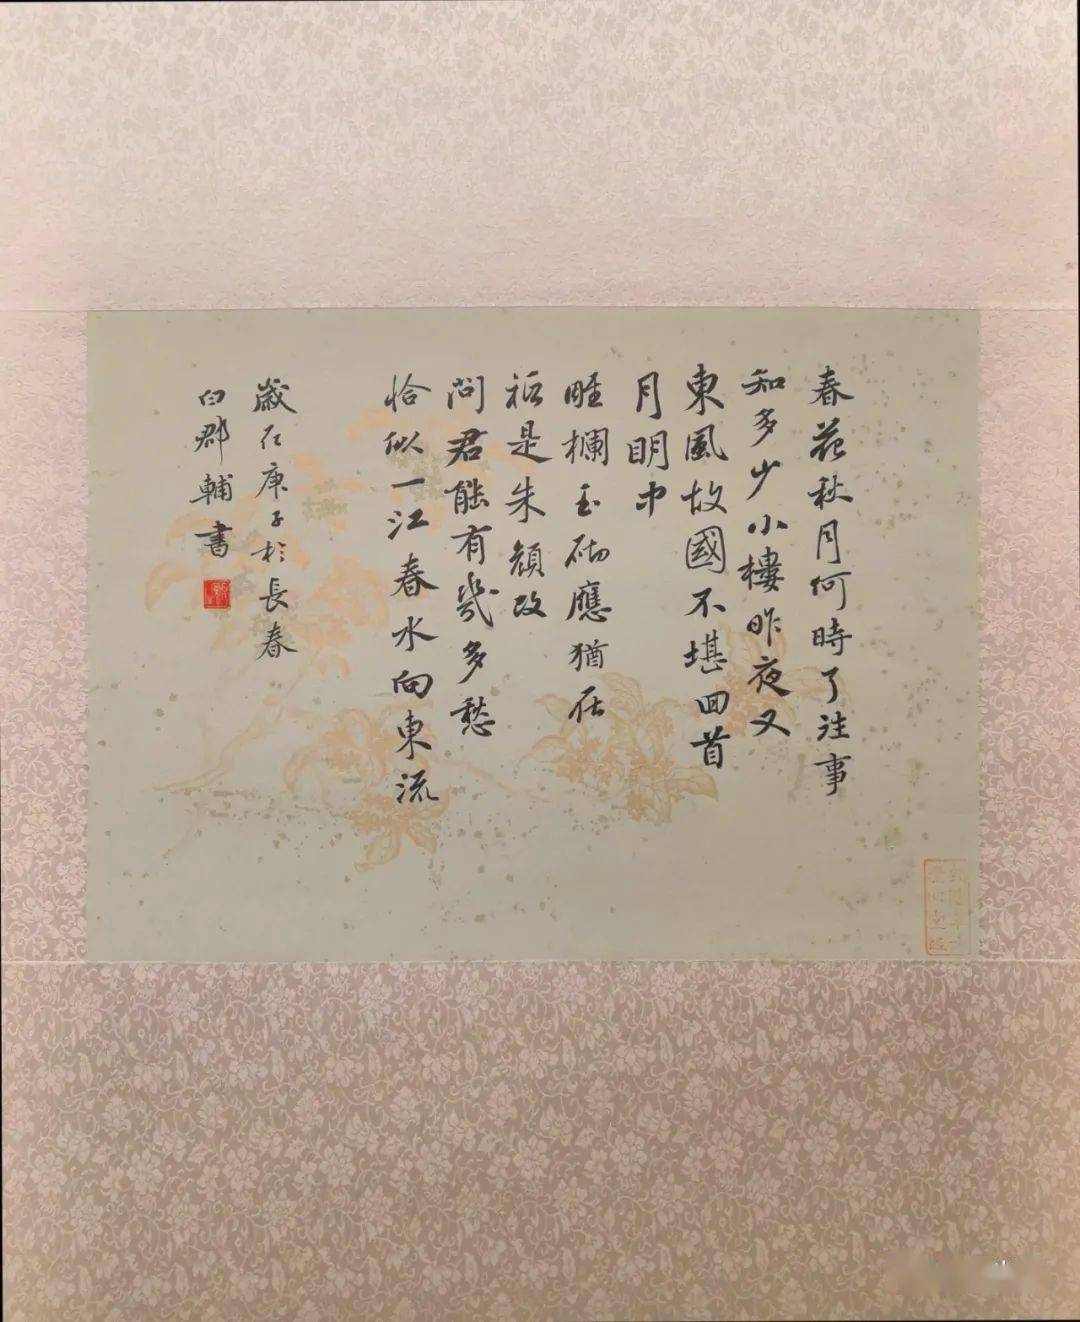 春花秋月何時了往事
知多少小樓昨夜又
東風故國不堪回首
月明中
雕欄玉砌應猶在
祗是朱顏改
問君能有幾多愁
恰似一江春水向東流
歲在庚子於長春
白郡輔書